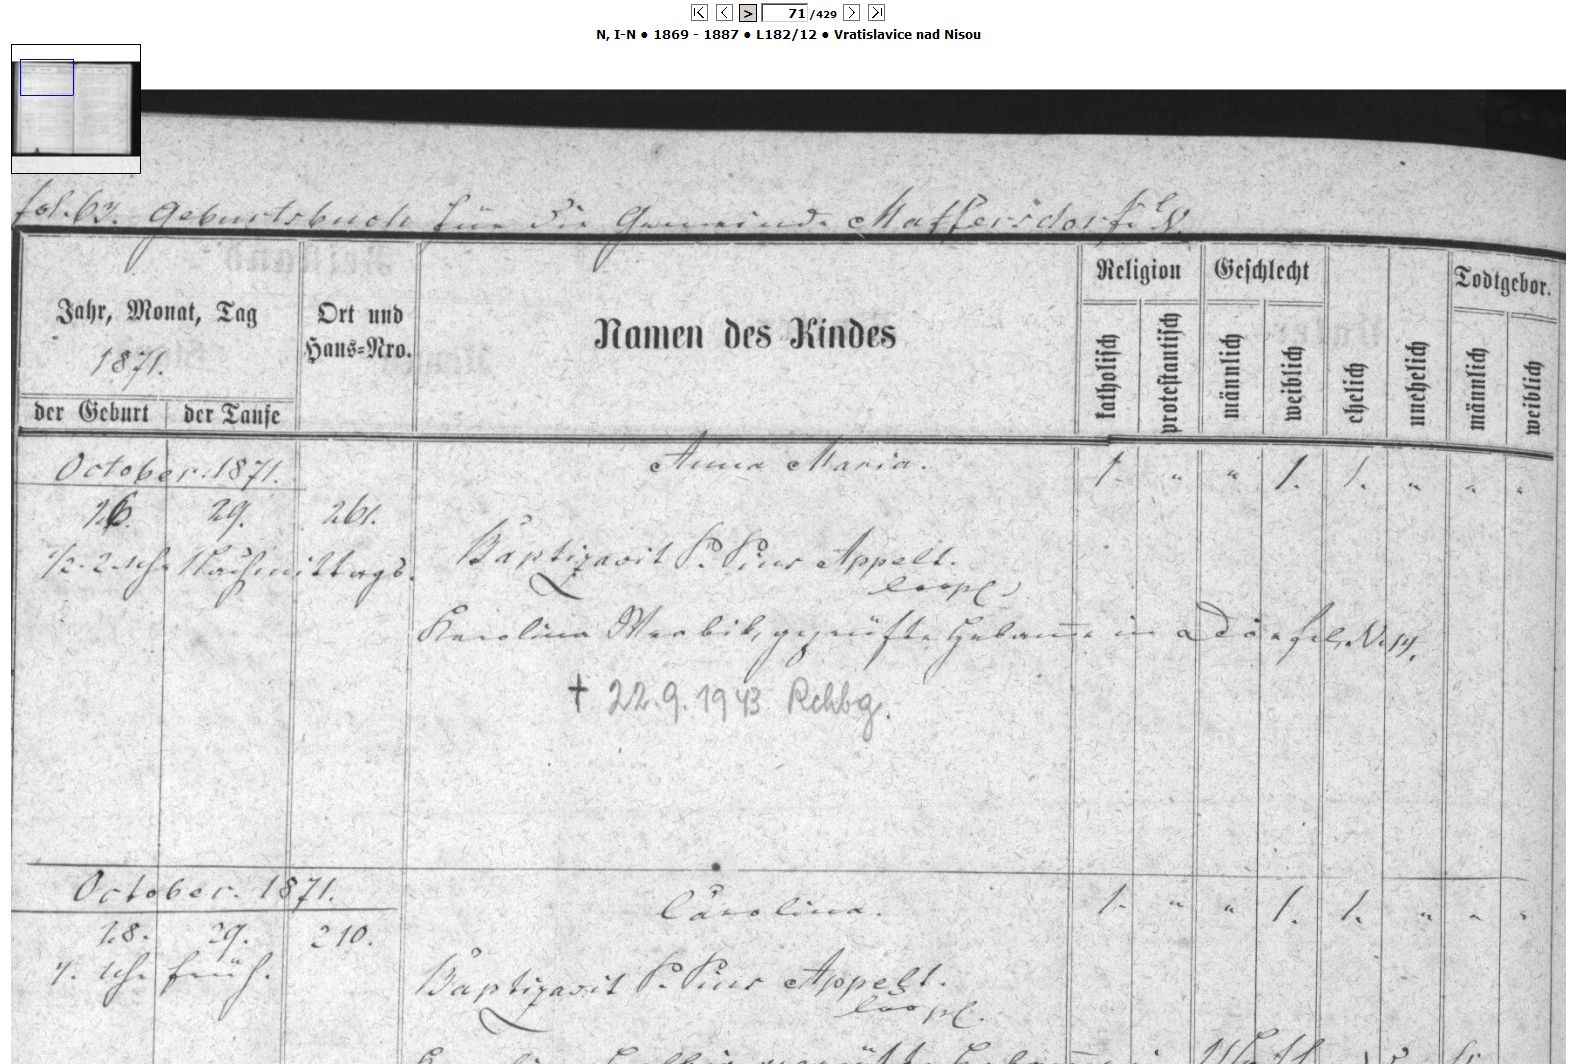 71 /429
N, I-N ● 1869 - 1887 ● L182/12 ● Vratislavice nad Nisou
fol. 63. Geburtsbuch für die Gemeinde Maffersdorf
Jahr, Monat, Tag
1871.
der Geburt
der Taufe
Ort und
Haus=Nro.
Namen des Kindes
Religion
katholisch
protestantisch
Geschlecht
männlich
weiblich
ehelich
unehelich
Todtgebor.
männlich
weiblich
October. 1871.
Anna Maria.
1. " " 1. 1. " " "
26. 29. 261.
1/2 2 Uhr Nachmittags.
Baptizavit P. Pius Appelt.
Coopl.
Karolina geprüfte Hebamme in Dörfel, N. 14.
† 22.9.1943 Rchbg.
October. 1871.
Carolina.
1. " " 1. 1. " " "
28. 29. 210.
Uhr früh.
Baptizavit P. Pius Appelt.
Coopl.